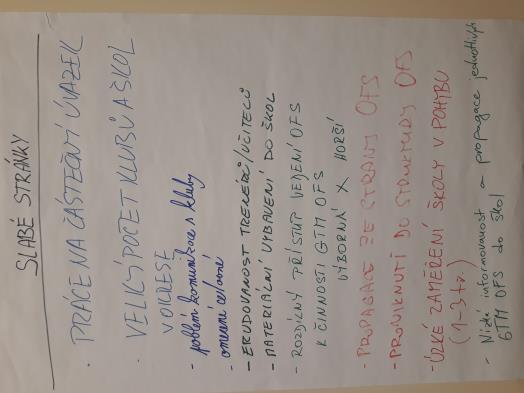 SLABÉ STRÁNKY
· PRÁCE NA ČÁSTEČNÝ ÚVAZEK
· VELKÝ POČET KLUBŮ A ŠKOL
V OKRESE
- problém komunikace s kluby
- omezení celovné
- ERUDOVANOST TRENÉRŮ/UČITELŮ
- MATERIÁLNÍ VYBAVENÍ DO ŠKOL
- ROZDÍLNÝ PŘÍSTUP VEDENÍ OFS
K ČINNOSTI GTM OFS
VÝBORNÁ X HORŠÍ
- PROPAGACE ZE STRANY OFS
- PRONIKNUTÍ DO STRUKTURY OFS
- ÚZKÉ ZAMĚŘENÍ ŠKOLY V POHYBU
(1-3 tř.)
- Nízká informovanost a propagace jednotlivých
GTM OFS do škol